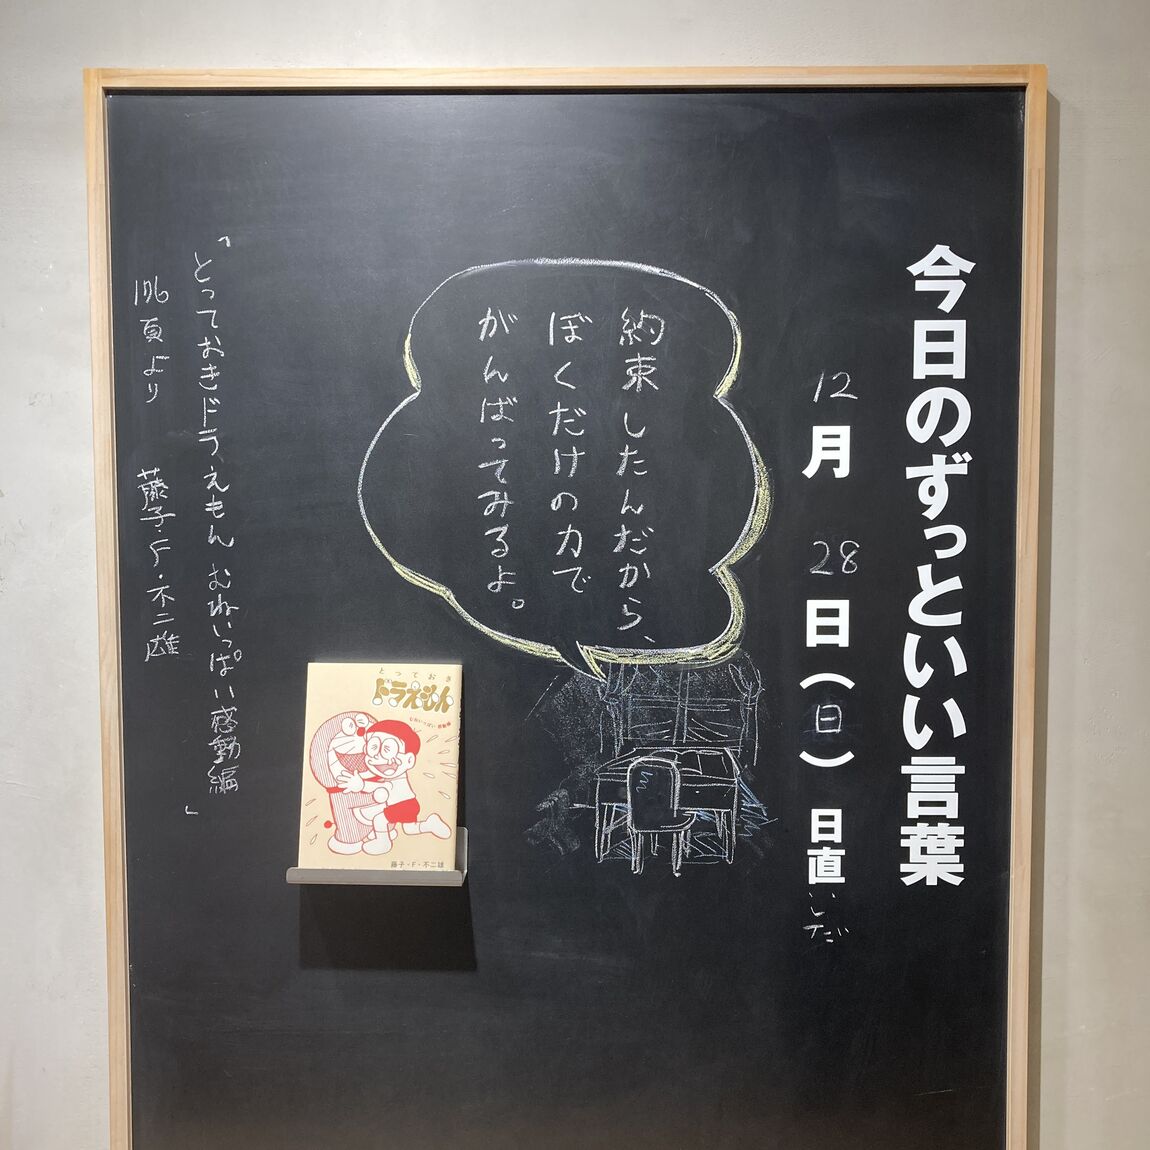 今日のずっといい言葉
12月28日(日)日直いしだ
約束したんだから、
ぼくだけの力で
がんばってみるよ。
「とっておきドラえもん むねいっぱい感動編」
176頁より 藤子・F・不二雄
とっておき
ドラえもん
むねいっぱい 感動編
藤子・F・不二雄